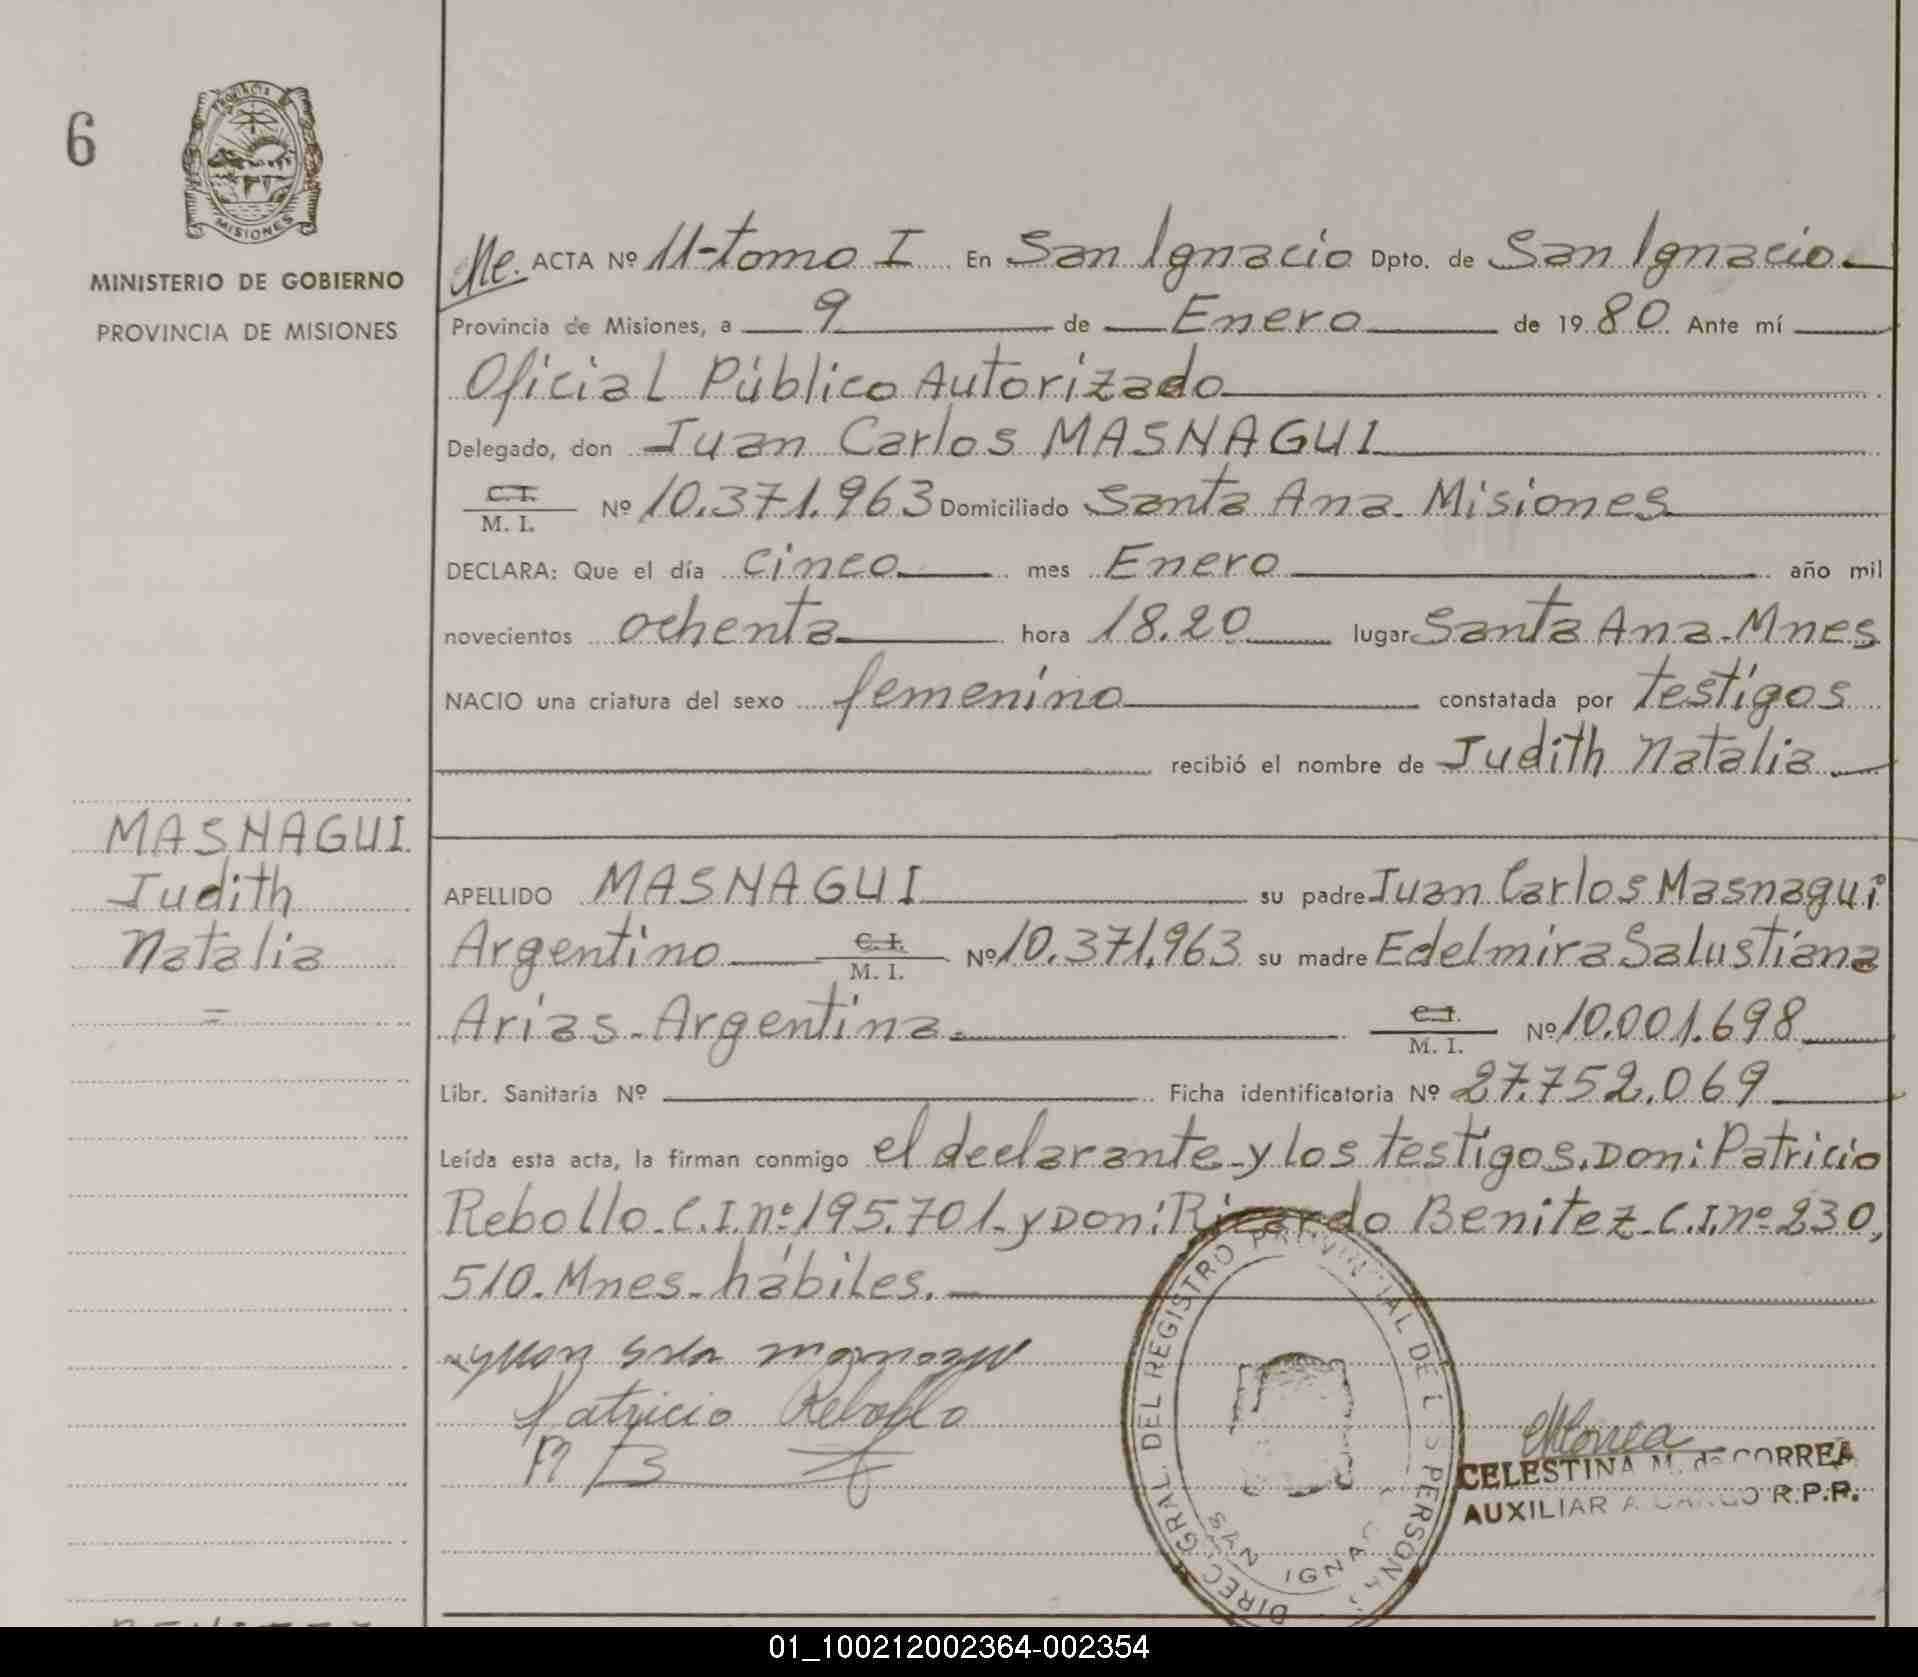 6
PROVINCIA DE
MISIONES
MINISTERIO DE GOBIERNO
PROVINCIA DE MISIONES
Me. ACTA Nº 11-tomo I En San Ignacio Dpto. de San Ignacio.
Provincia de Misiones, a 9 de Enero de 1980 Ante mí
Oficial Público Autorizado
Delegado, don Juan Carlos MASNAGUI
C.I.
M. I. Nº 10.371.963 Domiciliado Santa Ana. Misiones
DECLARA: Que el día cinco mes Enero año mil
novecientos ochenta hora 18.20 lugar Santa Ana. Mnes
NACIO una criatura del sexo femenino constatada por testigos
recibió el nombre de Judith Natalia
MASNAGUI
Judith
Natalia
=
APELLIDO MASNAGUI su padre Juan Carlos Masnagui
Argentino C.I.
M. I. Nº 10.371.963 su madre Edelmira Salustiana
Arias. Argentina. C.I.
M. I. Nº 10.001.698
Libr. Sanitaria Nº Ficha identificatoria Nº 27.752.069
Leída esta acta, la firman conmigo el declarante y los testigos. Don: Patricio
Rebollo. C.I. nº 195.701. y Don: Ricardo Benitez. C.I. nº 230,
510. Mnes. hábiles.
Patricio Rebollo
R B
DIREC. GRAL. DEL REGISTRO PROVINCIAL DE L S PERSONAS
SAN IGNAC
CELESTINA M. de CORREA
AUXILIAR A CARGO R.P.P.
01_100212002364-002354